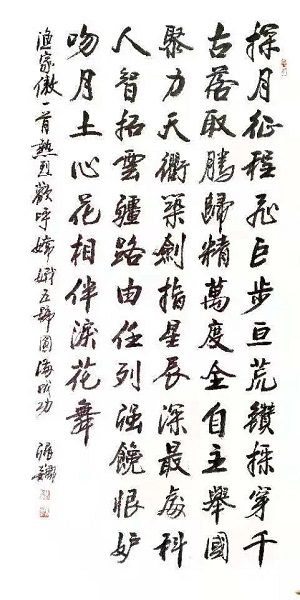 探月征程飛巨步亘荒鑽探穿千
古落取騰歸精萬度全自主舉國
聚力天衢築劍指星辰深最處科
人智拓雲疆路由任列强饞恨妒
吻月土心花相伴淚花舞
漁家傲一首熱烈歡呼嫦娥五號圓滿成功 張